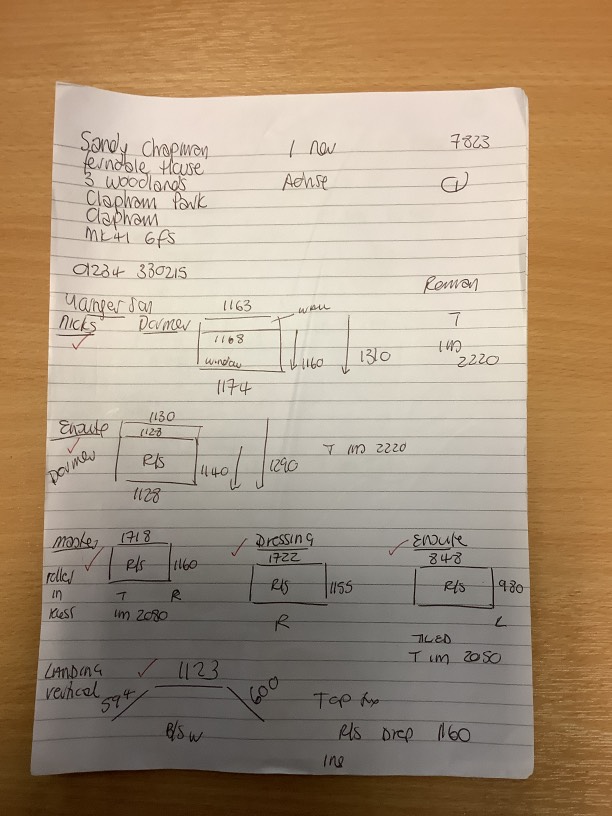 Sandy Chapman 1 nov 7823
ferndale House
3 woodlands 1
Clapham Park
Clapham
MK41 6FS
01234 330215
Younger Son 1163 Roman
nicks Dormer 1168 T
window 1160 1310 1m 2220
1174
Ensuite 1130
Dormer 1128
R/S 1140 1290 T 1m 2220
1128
Master 1718 Dressing Ensuite
R/S 1160 1722 848
rolled T R R/S 1155 R/S 980
in 1m 2080 R L
TILED
T 1m 2050
LANDING 1123
vertical 594 600 Top fix
R/S Drop 1160